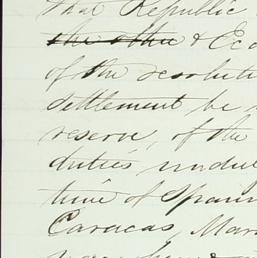 that Republic
the other & Eco
of the resolute
settlement be
reserve, of the
duties undul
time of Spani
Caracas, Mar